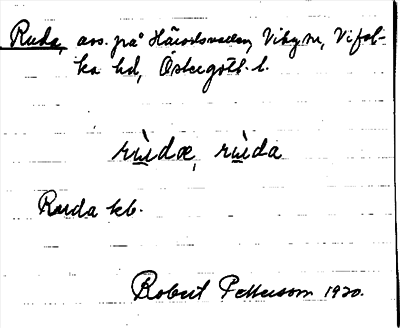 Ruda, avs. på Häradsveden, Viby sn, Vifol-
ka hd, Östergötl. l.
rùdæ, rùda
Ruda kb.
Robert Pettersson 1920.